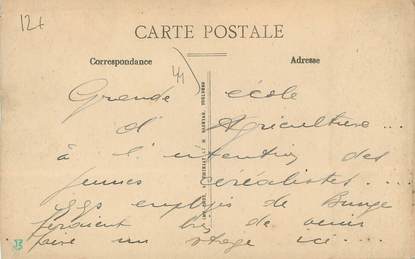 12+
CARTE POSTALE
Correspondance
Adresse
Grande école
d'Agriculture ...
à l'intention des
jeunes céréalistes ...
qqs employés de Bunge
feraient bien de venir
faire un stage ici ...